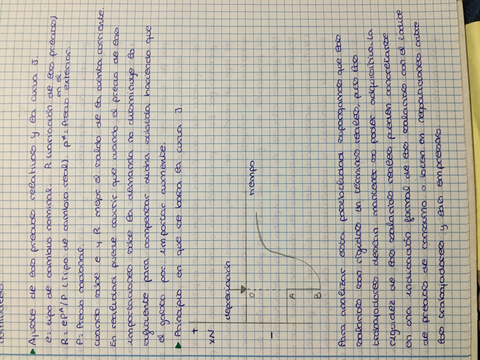 ▸ Ajuste de los precios relativos y la curva J.
e = tipo de cambio nominal. R (variación de los precios)
R = eP*/P (tipo de cambio real) P* = Precio exterior.
P = Precio nacional.
cuando sube e y R mejora el saldo de la cuenta corriente.
En realidad puede ocurrir que cuando el precio de las
importaciones sube la demanda no disminuye lo
suficiente para compensar dicha subida haciendo que
el gasto por importar aumente.
▸ Principio en que se basa la curva J.
+
XN
-
depreciación
0
A
B
tiempo
Para analizar esta posibilidad supongamos que los
salarios son rígidos en términos reales, pues los
trabajadores desean mantener su poder adquisitivo. La
rigidez de los salarios reales pueden
en una formal de los salarios con el índice
de precios de consumo o bien en negociaciones entre
los trabajadores y las empresas.